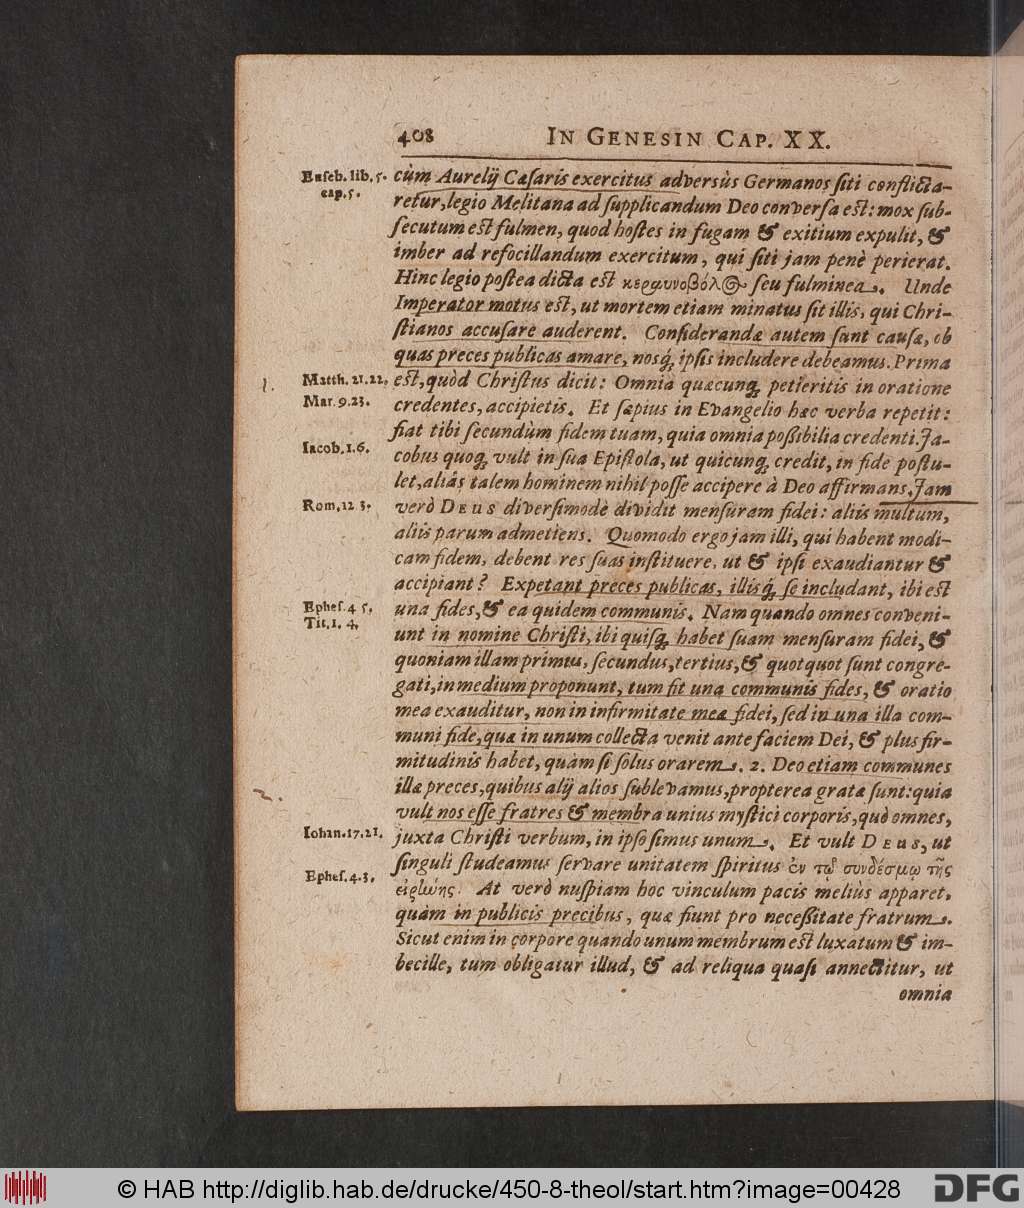 408 IN GENESIN CAP. XX.
Euseb. lib. 5.
cap. 5.
cùm Aurelij Cæsaris exercitus adversùs Germanos siti conflicta-
retur, legio Melitana ad supplicandum Deo conversa est: mox sub-
secutum est fulmen, quod hostes in fugam & exitium expulit, &
imber ad refocillandum exercitum, qui siti jam penè perierat.
Hinc legio postea dicta est κεραυνοβόλος seu fulminea. Unde
Imperator motus est, ut mortem etiam minatus sit illis, qui Chri-
stianos accusare auderent. Considerandæ autem sunt causæ, ob
quas preces publicas amare, nosq; ipsis includere debeamus. Prima
1. Matth. 21. 22.
est, quòd Christus dicit: Omnia quæcunq; petieritis in oratione
Mar. 9. 23.
credentes, accipietis. Et sæpius in Evangelio hæc verba repetit:
fiat tibi secundùm fidem tuam, quia omnia possibilia credenti. Ja-
Iacob. 1. 6.
cobus quoq; vult in sua Epistola, ut quicunq; credit, in fide postu-
let, aliâs talem hominem nihil posse accipere à Deo affirmans. Jam
Rom. 12 3.
verò DEUS diversimodè dividit mensuram fidei: aliis multum,
aliis parum admetiens. Quomodo ergo jam illi, qui habent modi-
cam fidem, debent res suas instituere, ut & ipsi exaudiantur &
accipiant? Expetant preces publicas, illisq; se includant, ibi est
Ephes. 4 5.
Tit. 1. 4.
una fides, & ea quidem communis. Nam quando omnes conveni-
unt in nomine Christi, ibi quisq; habet suam mensuram fidei, &
quoniam illam primus, secundus, tertius, & quotquot sunt congre-
gati, in medium proponunt, tum fit una communis fides, & oratio
mea exauditur, non in infirmitate meæ fidei, sed in una illa com-
muni fide, quæ in unum collecta venit ante faciem Dei, & plus fir-
mitudinis habet, quàm si solus orarem. 2. Deo etiam communes
2.
illæ preces, quibus alij alios sublevamus, propterea gratæ sunt: quia
vult nos esse fratres & membra unius mystici corporis, quò omnes,
Iohan. 17. 21.
juxta Christi verbum, in ipso simus unum. Et vult DEUS, ut
singuli studeamus servare unitatem spiritus ἐν τῷ συνδέσμῳ τῆς
Ephes. 4. 3.
εἰρήνης. At verò nuspiam hoc vinculum pacis meliùs apparet,
quàm in publicis precibus, quæ fiunt pro necessitate fratrum.
Sicut enim in corpore quando unum membrum est luxatum & im-
becille, tum obligatur illud, & ad reliqua quasi annectitur, ut
omnia
© HAB http://diglib.hab.de/drucke/450-8-theol/start.htm?image=00428
DFG